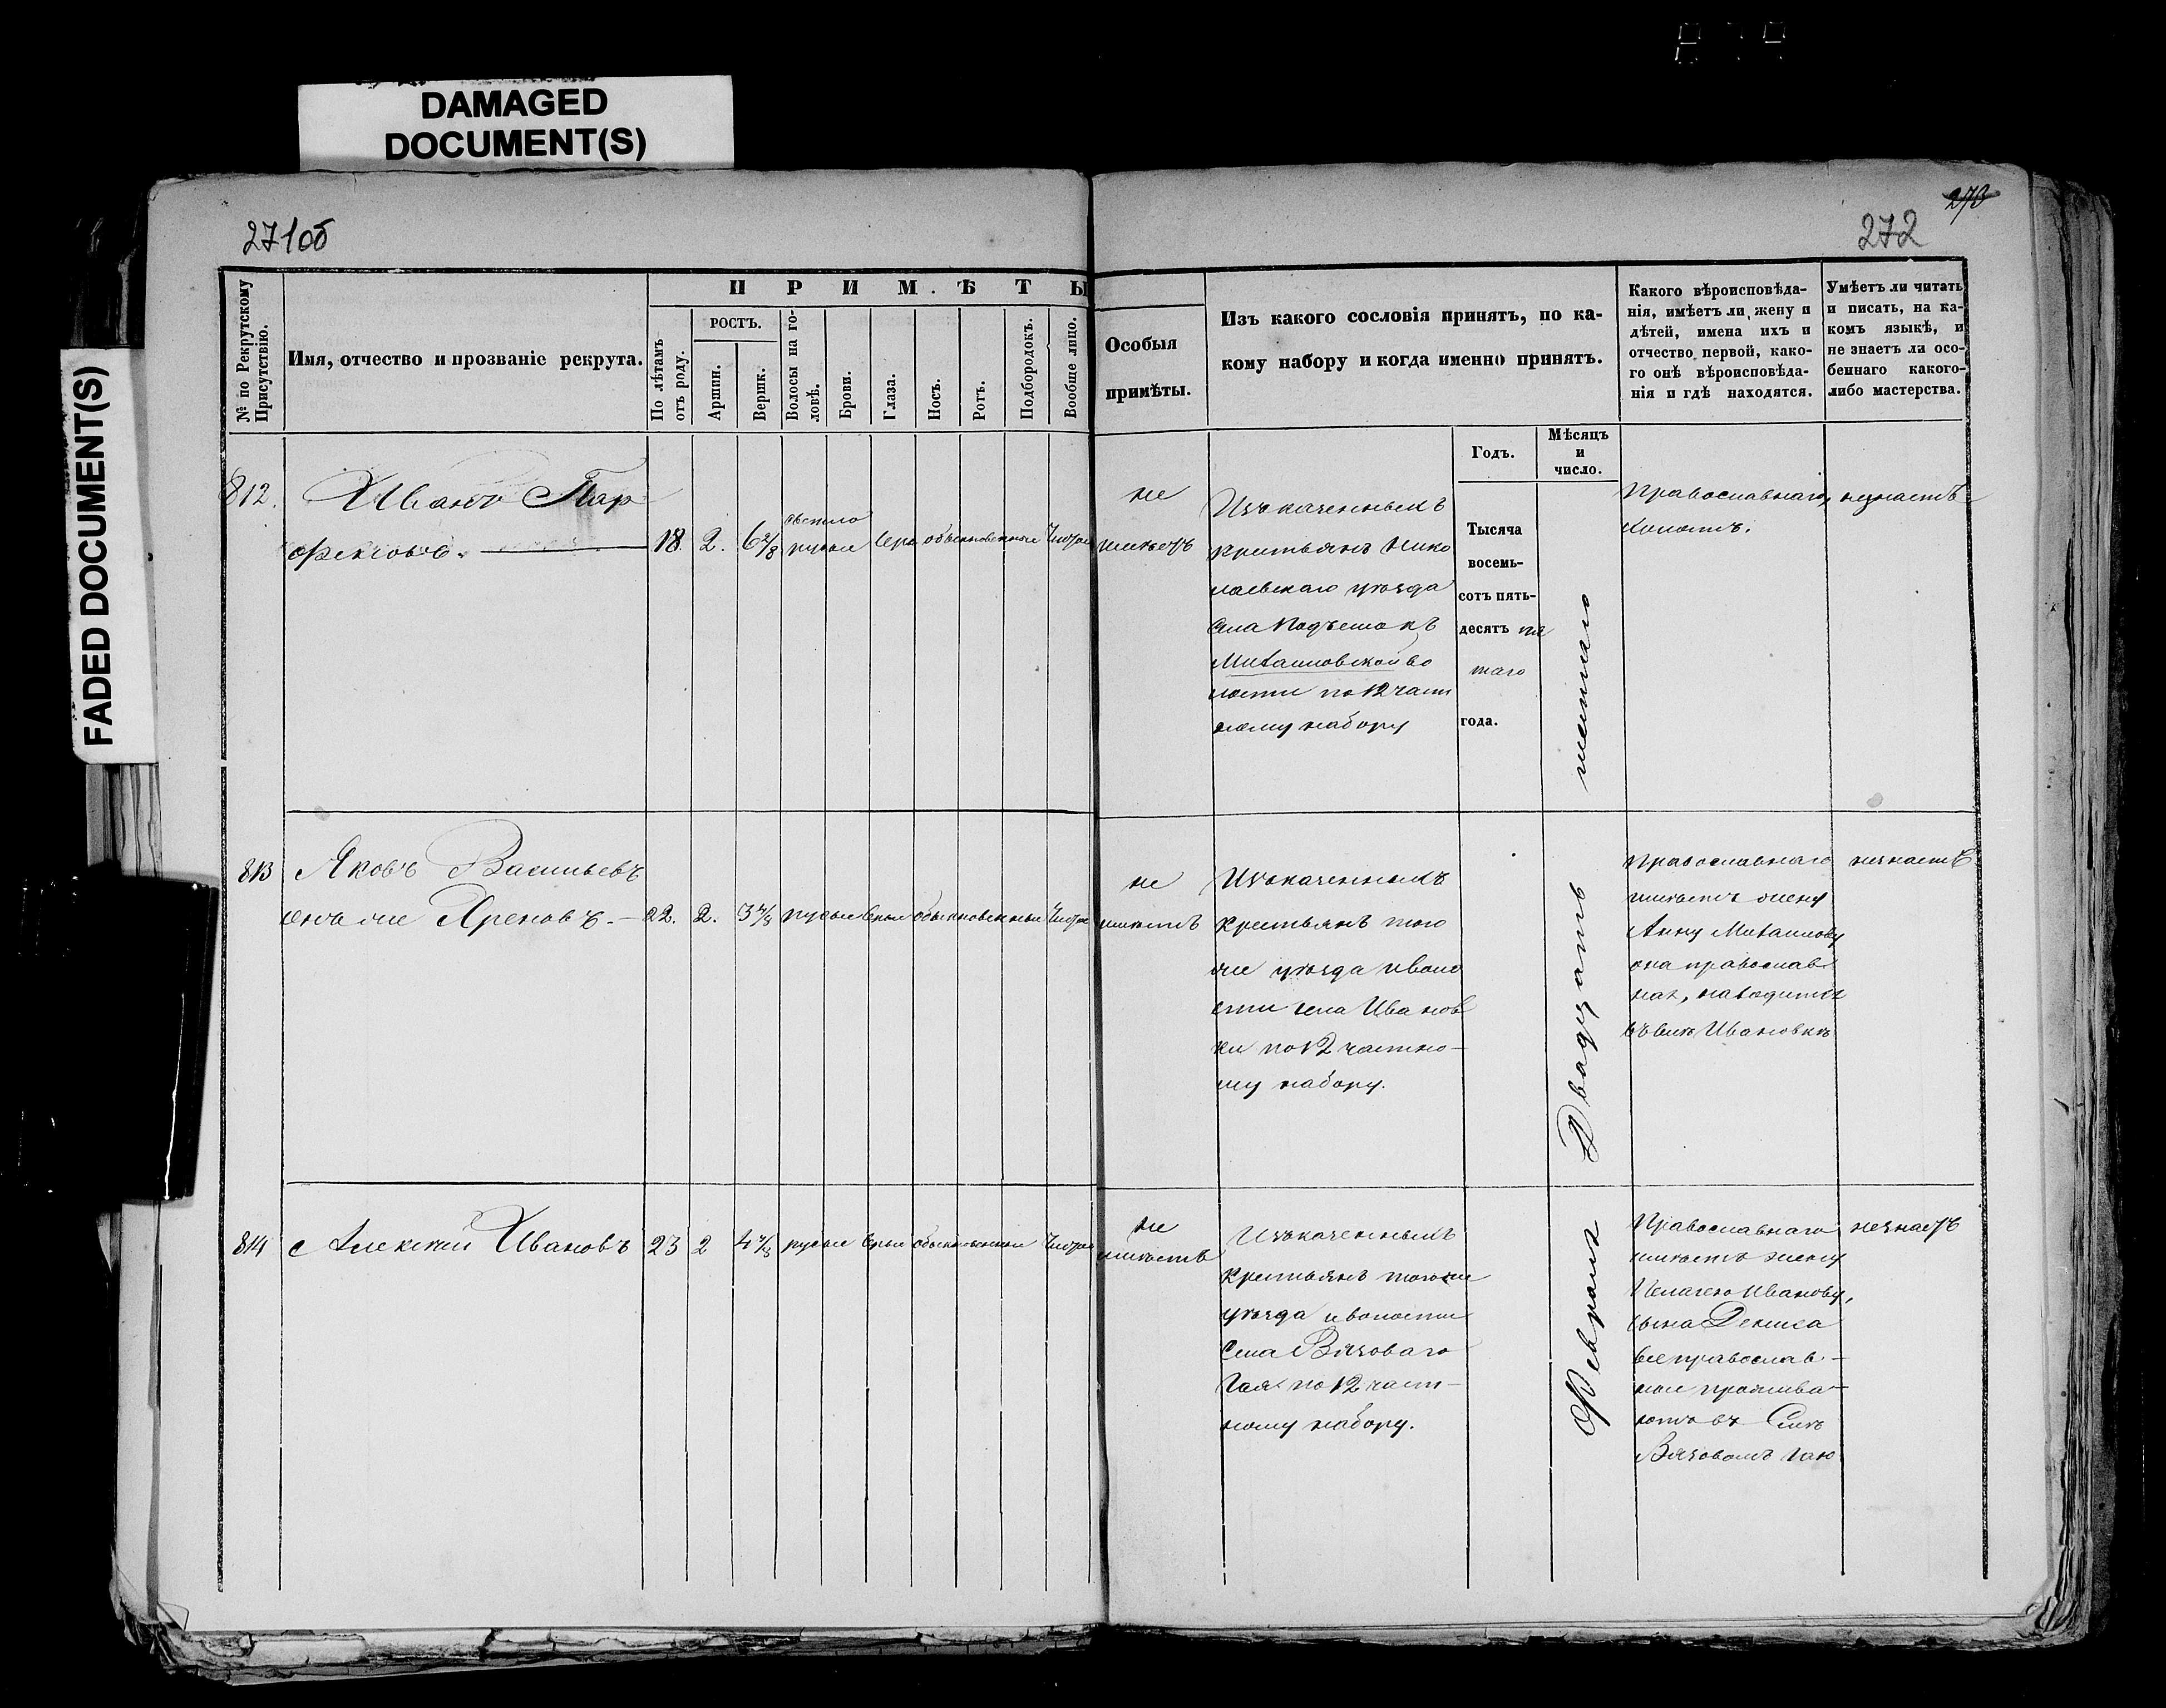 DAMAGED
DOCUMENT(S)
FADED DOCUMENT(S)
271об
273
272
№ по Рекрутскому
Присутствію.
Имя, отчество и прозваніе рекрута.
ПРИМѢТЫ
По лѣтамъ
отъ роду.
РОСТЪ.
Аршин.
Вершк.
Волосы на го-
ловѣ.
Брови.
Глаза.
Носъ.
Ротъ.
Подбородокъ.
Вообще лицо.
Особыя
примѣты.
Изъ какого сословія принятъ, по ка-
кому набору и когда именно принятъ.
Годъ.
Мѣсяцъ
и
число.
Какого вѣроисповѣда-
нія, имѣетъ ли жену и
дѣтей, имена ихъ и
отчество первой, како-
го онѣ вѣроисповѣда-
нія и гдѣ находятся.
Умѣетъ ли читать
и писать, на ка-
комъ языкѣ, и
не знаетъ ли осо-
беннаго какого-
либо мастерства.
812.
Иванъ Пар
феновъ.
18.
2.
6 2/8
светло
русые
серы
обыкновенные
Чистое
не
имѣетъ
Изъ казенныхъ
крестьянъ Нико
лаевскаго уѣзда
Села Подъемокъ
Михайловской во
лости по 12 част
ному набору
Тысяча
восемь-
сотъ пять-
десятъ пя
таго
года.
Православнаго,
холостъ.
незнаетъ
813
Яковъ Васильевъ
онъ же Хреновъ.
22.
2.
3 4/8
русые
серые
обыкновенные
Чистое
не
имѣетъ
Изъ казенныхъ
крестьянъ того
же уѣзда и воло
сти села Иванов
ки по 12 частно-
му набору.
Православнаго
имѣетъ жену
Анну Михайлову
она православ
ная, находится
въ селѣ Ивановкѣ
незнаетъ
814
Алексѣй Ивановъ
23
2
4 4/8
русые
серые
обыкновенные
Чистое
не
имѣетъ
Изъ казенныхъ
крестьянъ того же
уѣзда и волости
Села Вязоваго
Гая по 12 част-
ному набору.
Февраля Двадцать шестаго
Православнаго
имѣетъ жену
Пелагею Иванову,
сына Дениса
все православ-
ные прожива-
ютъ въ Селѣ
Вязовомъ Гаю
незнаетъ